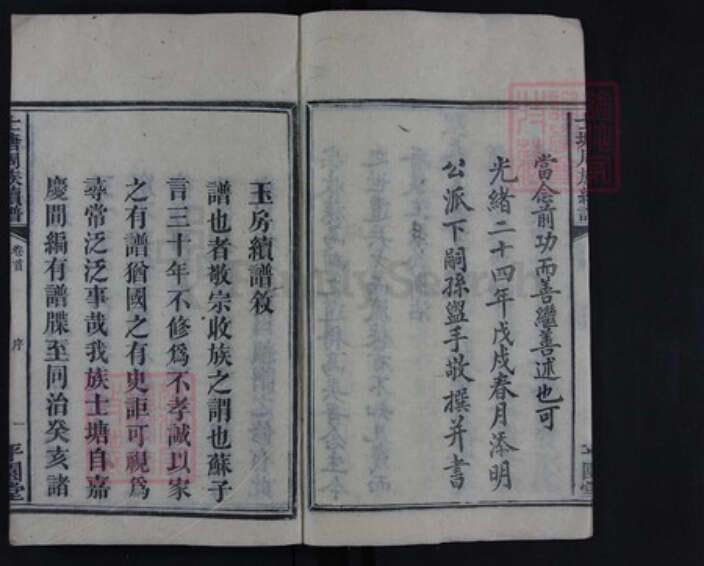 當念前功而善繼善述也可
光緒二十四年戊戌春月添明
公派下嗣孫盥手敬撰并書
士塘周族續譜
卷首
序
一
平園堂
玉房續譜敘
譜也者敬宗收族之謂也蘇子
言三十年不修爲不孝誠以家
之有譜猶國之有史詎可視爲
尋常泛泛事哉我族士塘自嘉
慶間編有譜牒至同治癸亥諸